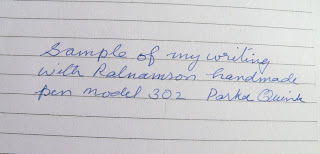 Sample of my writing
with Ratnamson handmade
pen model 302 Parker Quink